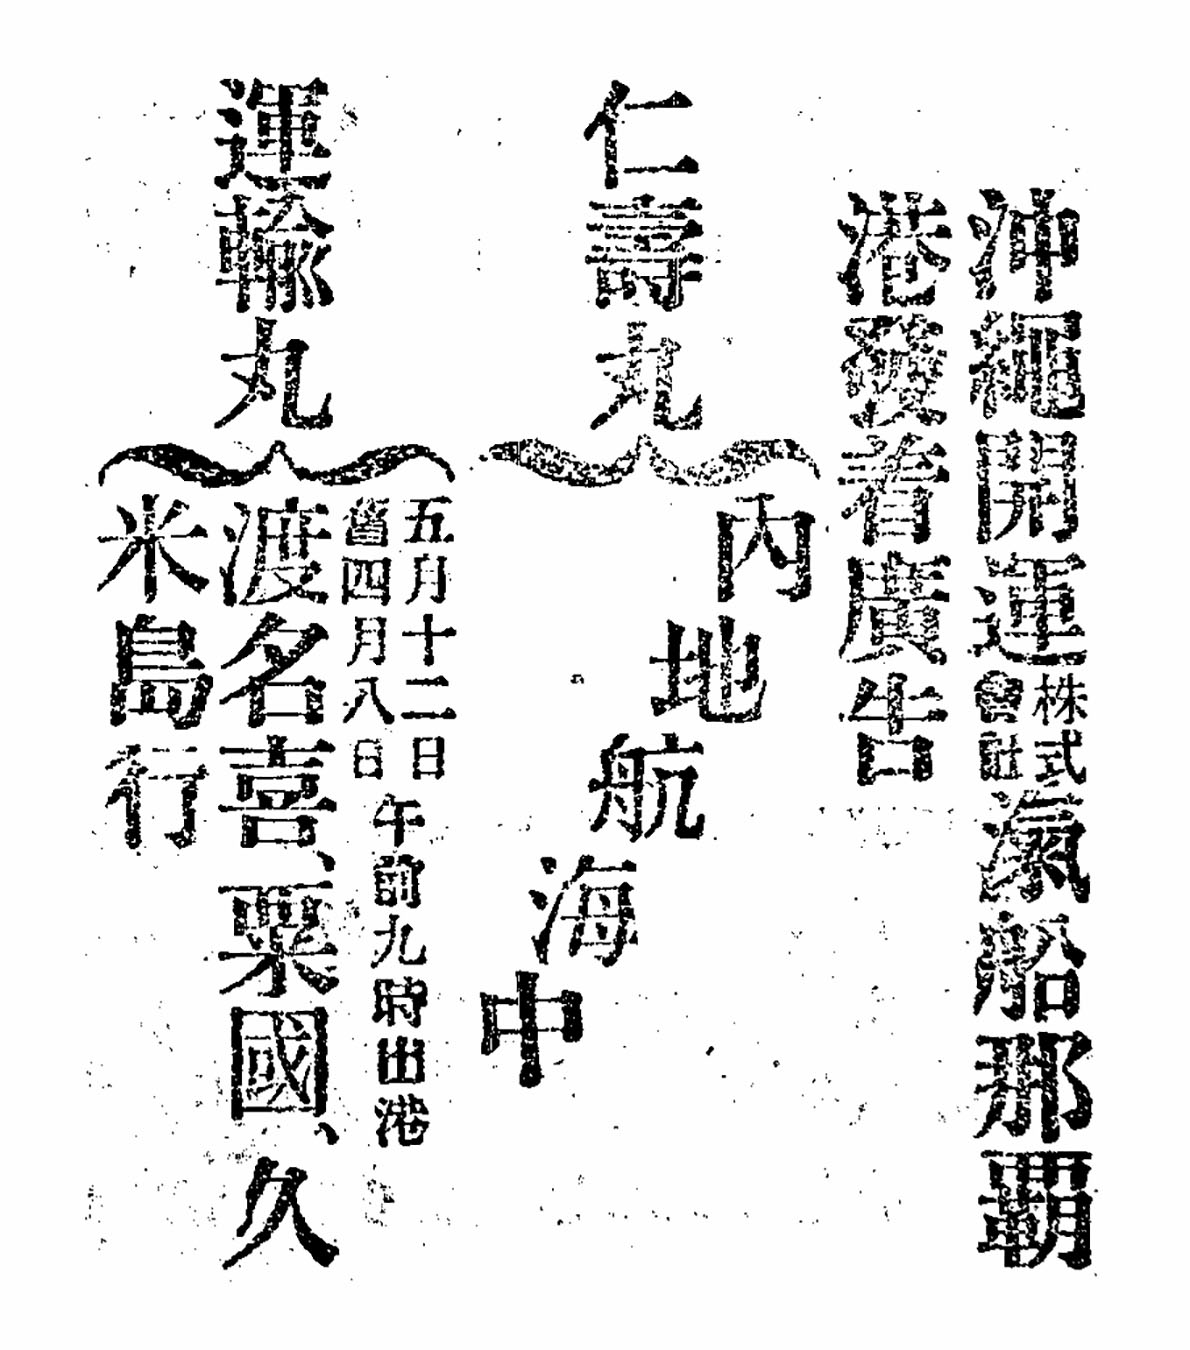 沖繩開運株式會社滊船那覇
港發着廣告
仁壽丸
內地航海中
運輸丸
五月十二日
舊四月八日
午前九時出港
渡名喜、粟國、久
米島行